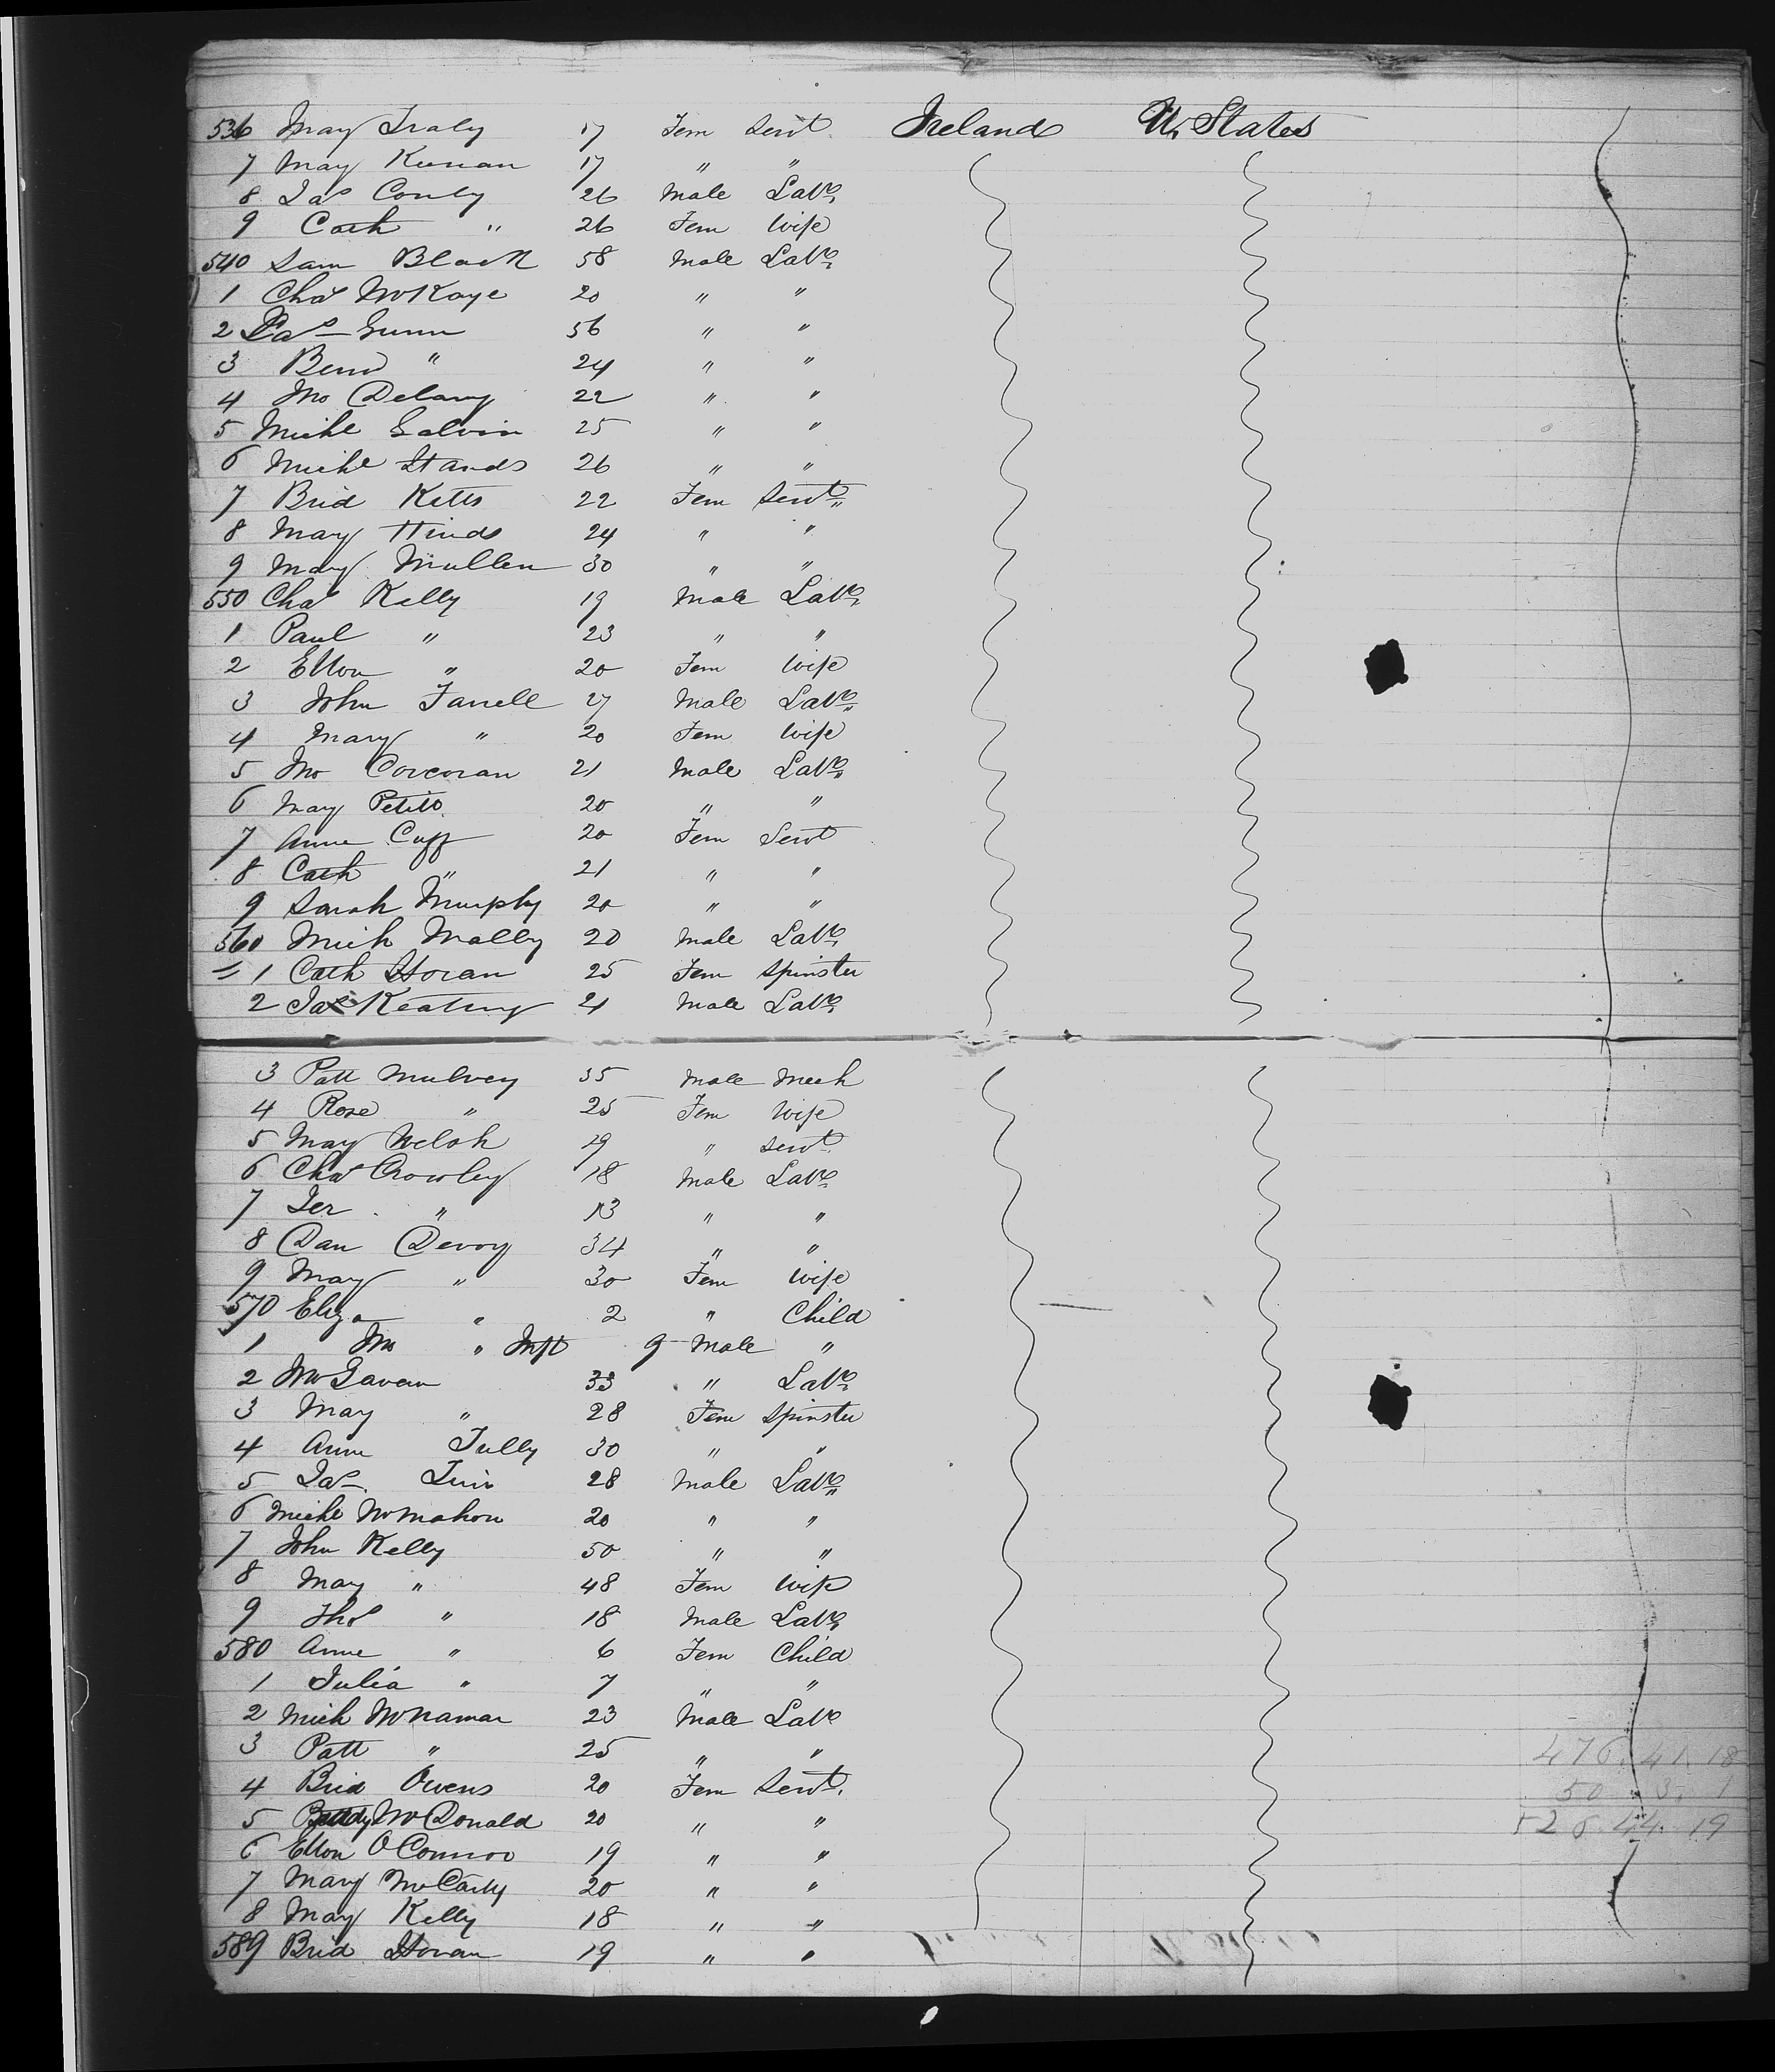 536 May Traly 17 Fem Servt Ireland U. States
7 May Kernan 17 " "
8 Jas Conly 26 Male Labr
9 Cath " 26 Fem Wife
540 Sam Black 58 Male Labr
1 Chas McKaye 20 " "
2 Pas Gunn 56 " "
3 Bernd " 24 " "
4 Jno Delany 22 " "
5 Michl Galvin 25 " "
6 Michl Hands 26 " "
7 Brid Ketts 22 Fem Servt
8 May Hinds 24 " "
9 Mary Mullen 30 " "
550 Chas Kelly 19 Male Labr
1 Paul " 23 " "
2 Ellen " 20 Fem Wife
3 John Farrell 27 Male Labr
4 Mary " 20 Fem Wife
5 Jno Corcoran 21 Male Labr
6 May Petitt 20 " "
7 Anne Cuff 20 Fem Servt
8 Cath " 21 " "
9 Sarah Murphy 20 " "
560 Mich Mally 20 Male Labr
1 Cath Horan 25 Fem Spinster
2 Jas Keating 21 Male Labr
3 Patt Mulvey 35 Male Mech
4 Rose " 25 Fem Wife
5 May Welsh 19 " Servt
6 Chas Crowley 18 Male Labr
7 Jer " 13 " "
8 Dan Devoy 34 " "
9 May " 30 Fem Wife
570 Eliza " 2 " Child
1 Jno " Inft 9 Male "
2 McGavan 33 " Labr
3 May " 28 Fem Spinster
4 Anne Tully 30 " "
5 Jas 28 Male Labr
6 Michl McMahon 20 " "
7 John Kelly 50 " "
8 May " 48 Fem Wife
9 Thos " 18 Male Labr
580 Anne " 6 Fem Child
1 Julia " 7 " "
2 Mich McNamar 23 Male Labr
3 Patt " 25 " "
4 Brid Owens 20 Fem Servt
5 McDonald 20 " "
6 Ellen OConnor 19 " "
7 Mary McCarty 20 " "
8 May Kelly 18 " "
589 Brid Horan 19 " "
476. 41. 18
50 3. 1
526. 44. 19